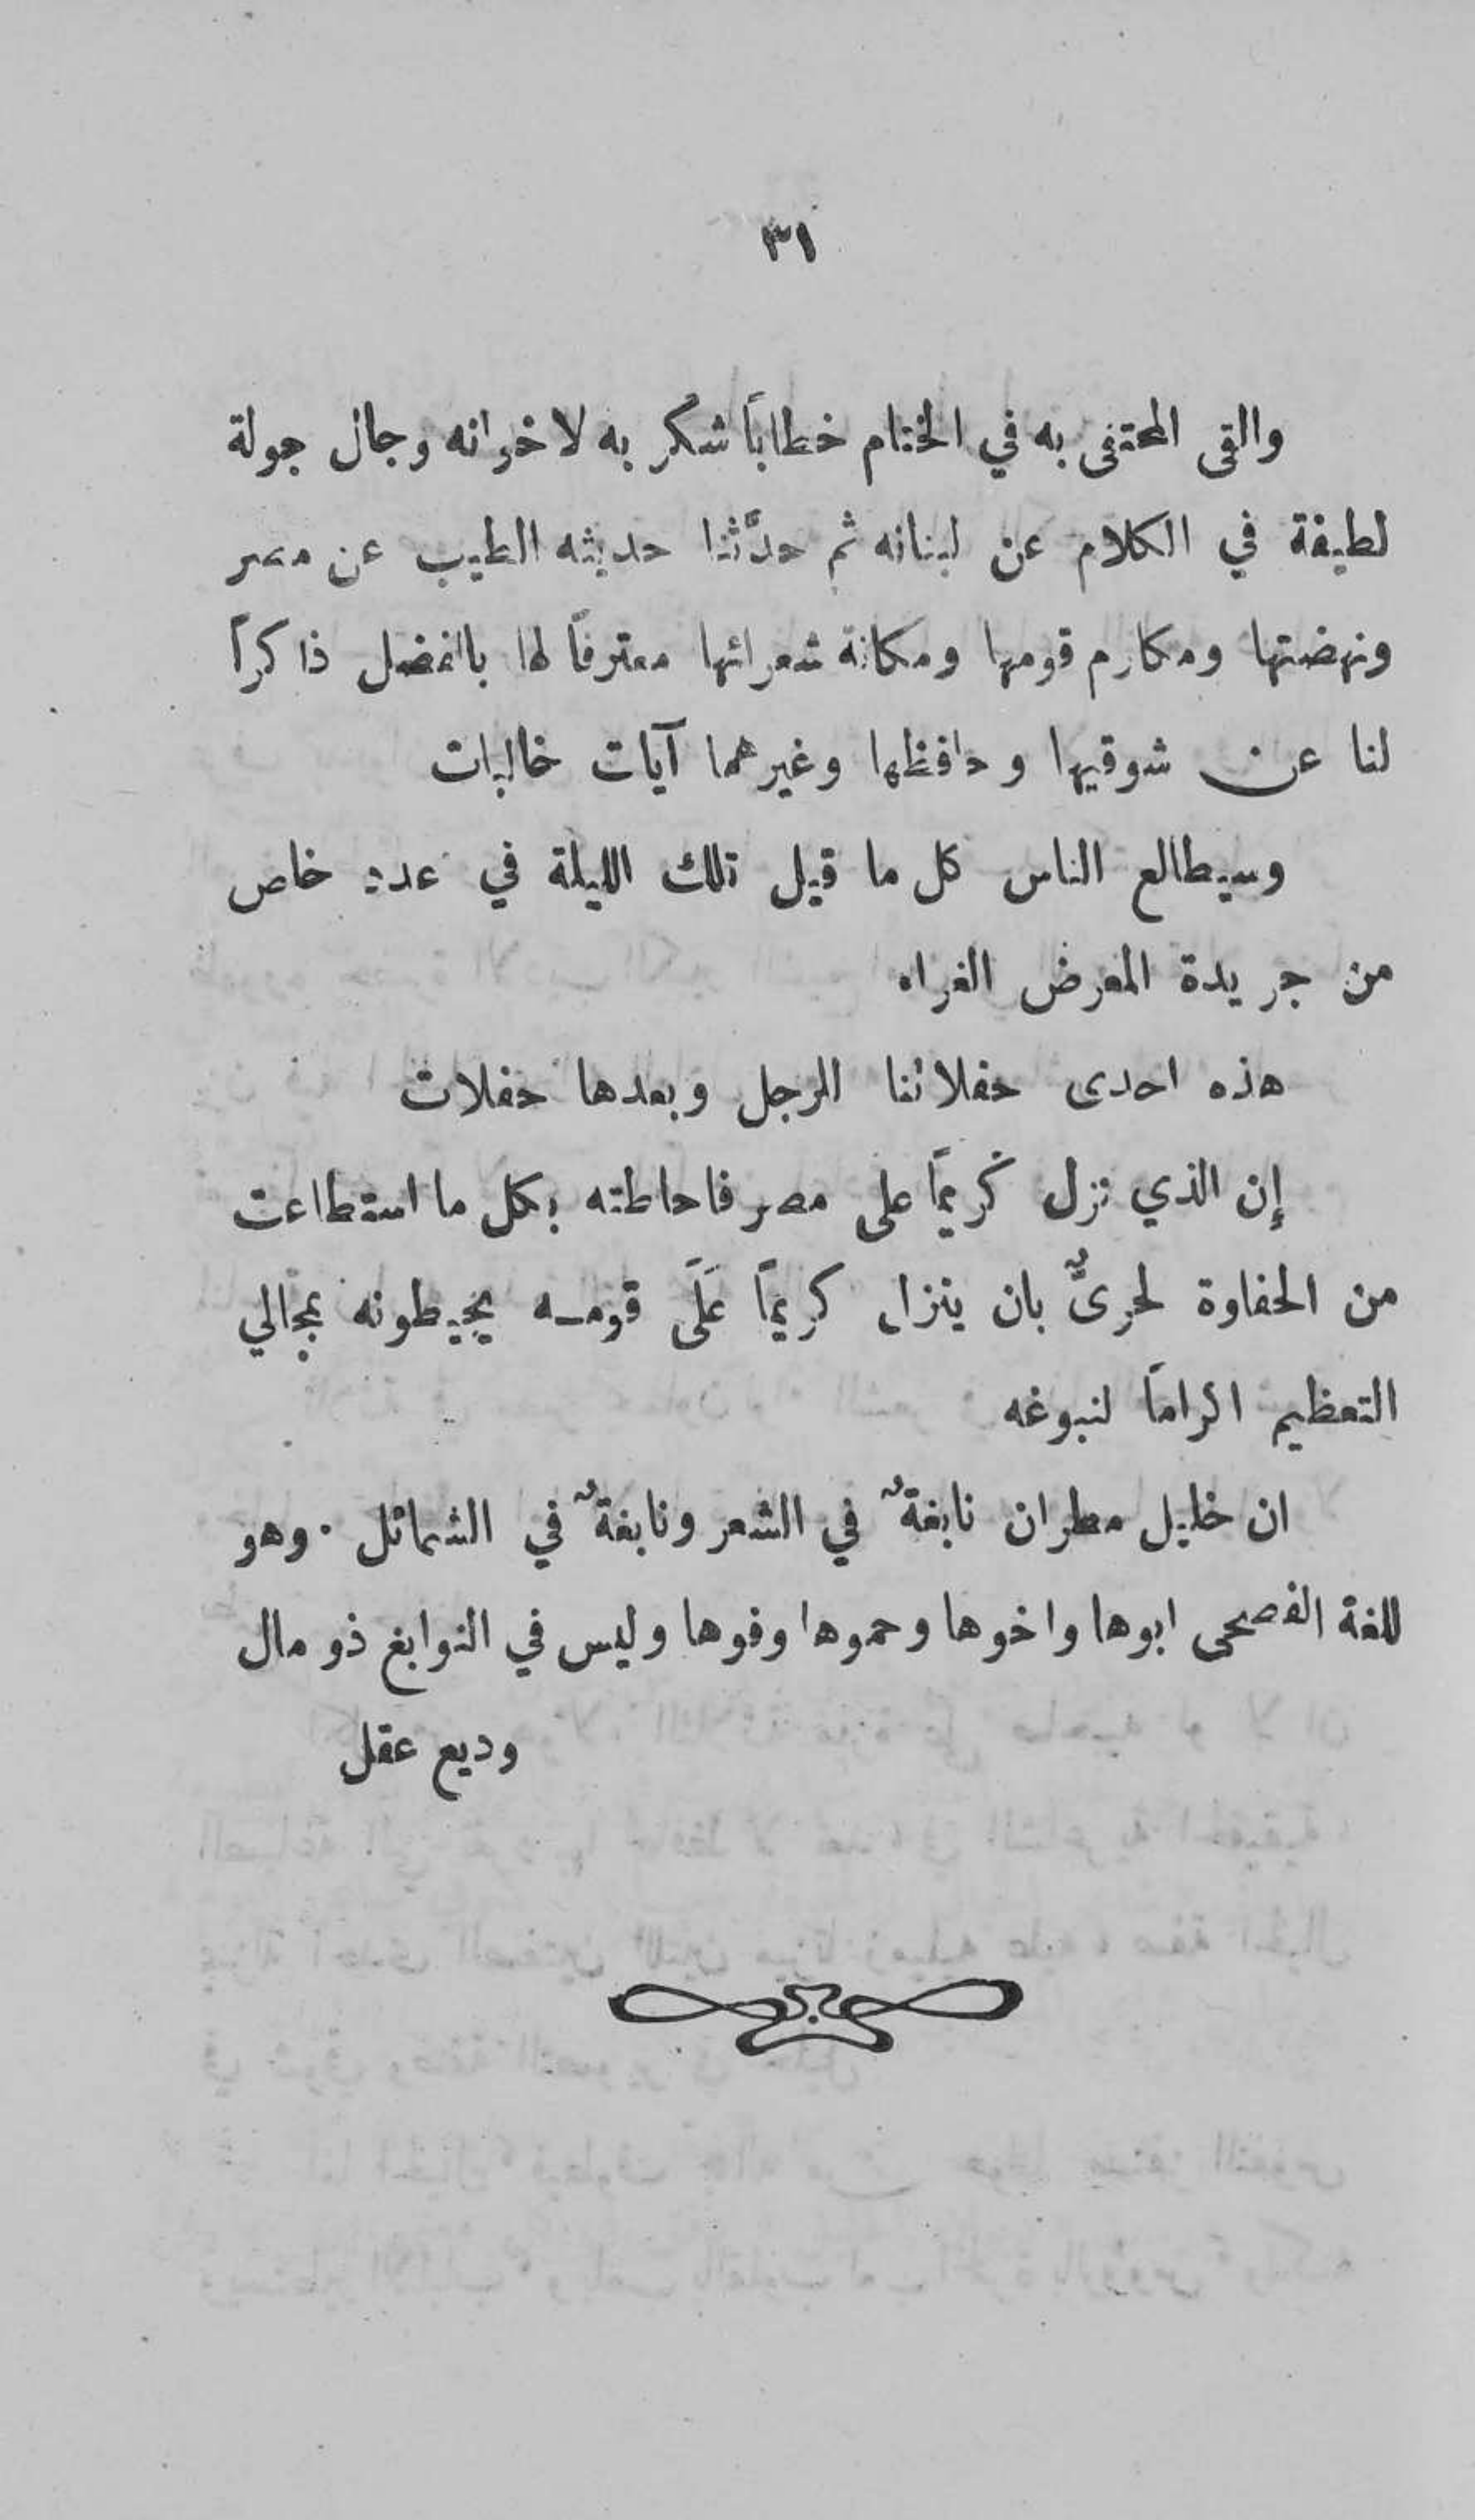 ٣١
والقى المحتفى به في الختام خطاباً شكر به لاخوانه وجال جولة
لطيفة في الكلام عن لبنانه ثم حدَّثنا حديثه الطيب عن مصر
ونهضتها ومكارم قومها ومكانة شعرائها معترفاً لها بالفضل ذاكراً
لنا عن شوقيها وحافظها وغيرهما آيات خالبات
وسيطالع الناس كل ما قيل تلك الليلة في عدد خاص
من جريدة المعرض الغراء
هذه احدى حفلاتنا للرجل وبعدها حفلات
إن الذي نزل كريماً على مصر فاحاطته بكل ما استطاعت
من الحفاوة لحريٌّ بان ينزل كريماً عَلَى قومه يحيطونه بمجالي
التعظيم اكراماً لنبوغه
ان خليل مطران نابغةٌ في الشعر ونابغةٌ في الشمائل . وهو
للغة الفصحى ابوها واخوها وحموها وفوها وليس في النوابغ ذو مال
وديع عقل